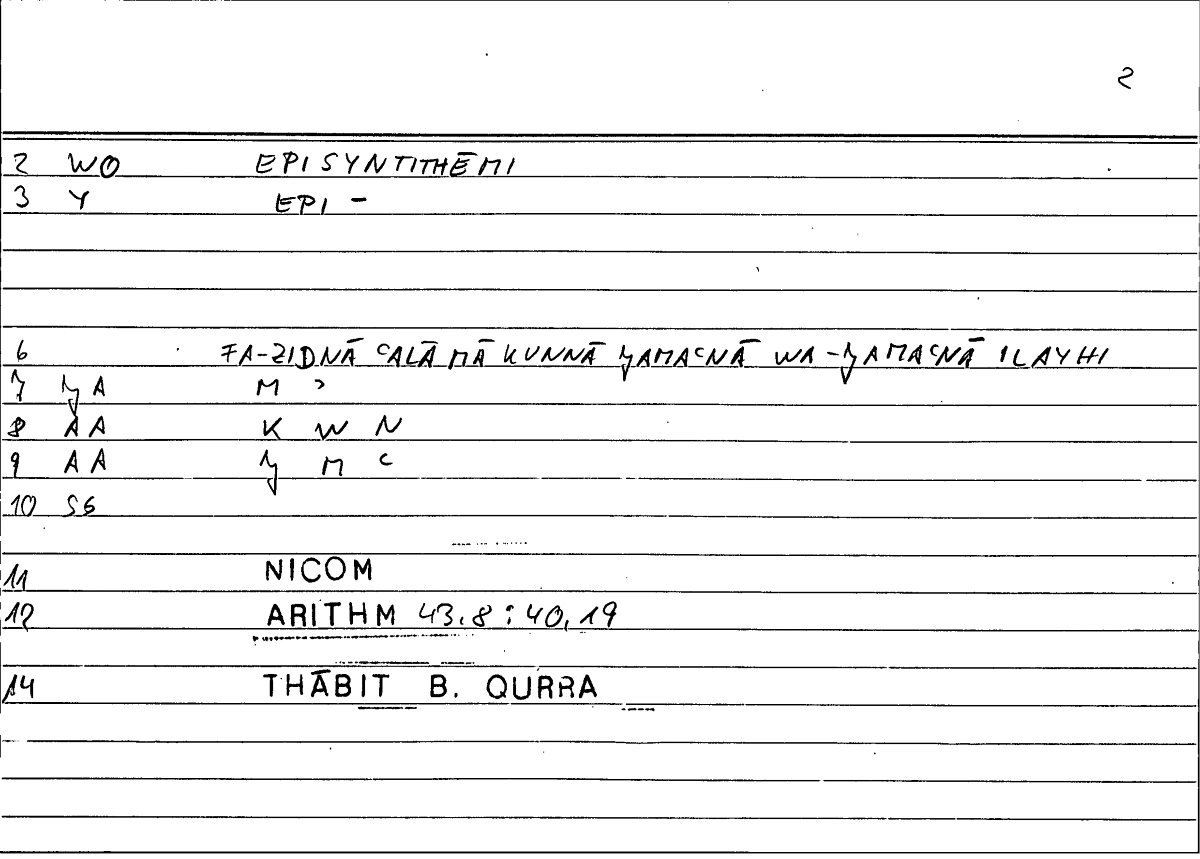 2
2 WO EPISYNTITHĒMI
3 Y EPI -
6 FA-ZIDNĀ ʿALĀ MĀ KUNNĀ JAMAʿNĀ WA-JAMAʿNĀ ILAYHI
7 JA M ʾ
8 AA K W N
9 AA J M ʿ
10 SG
11 NICOM
12 ARITHM 43.8 : 40,19
14 THĀBIT B. QURRA